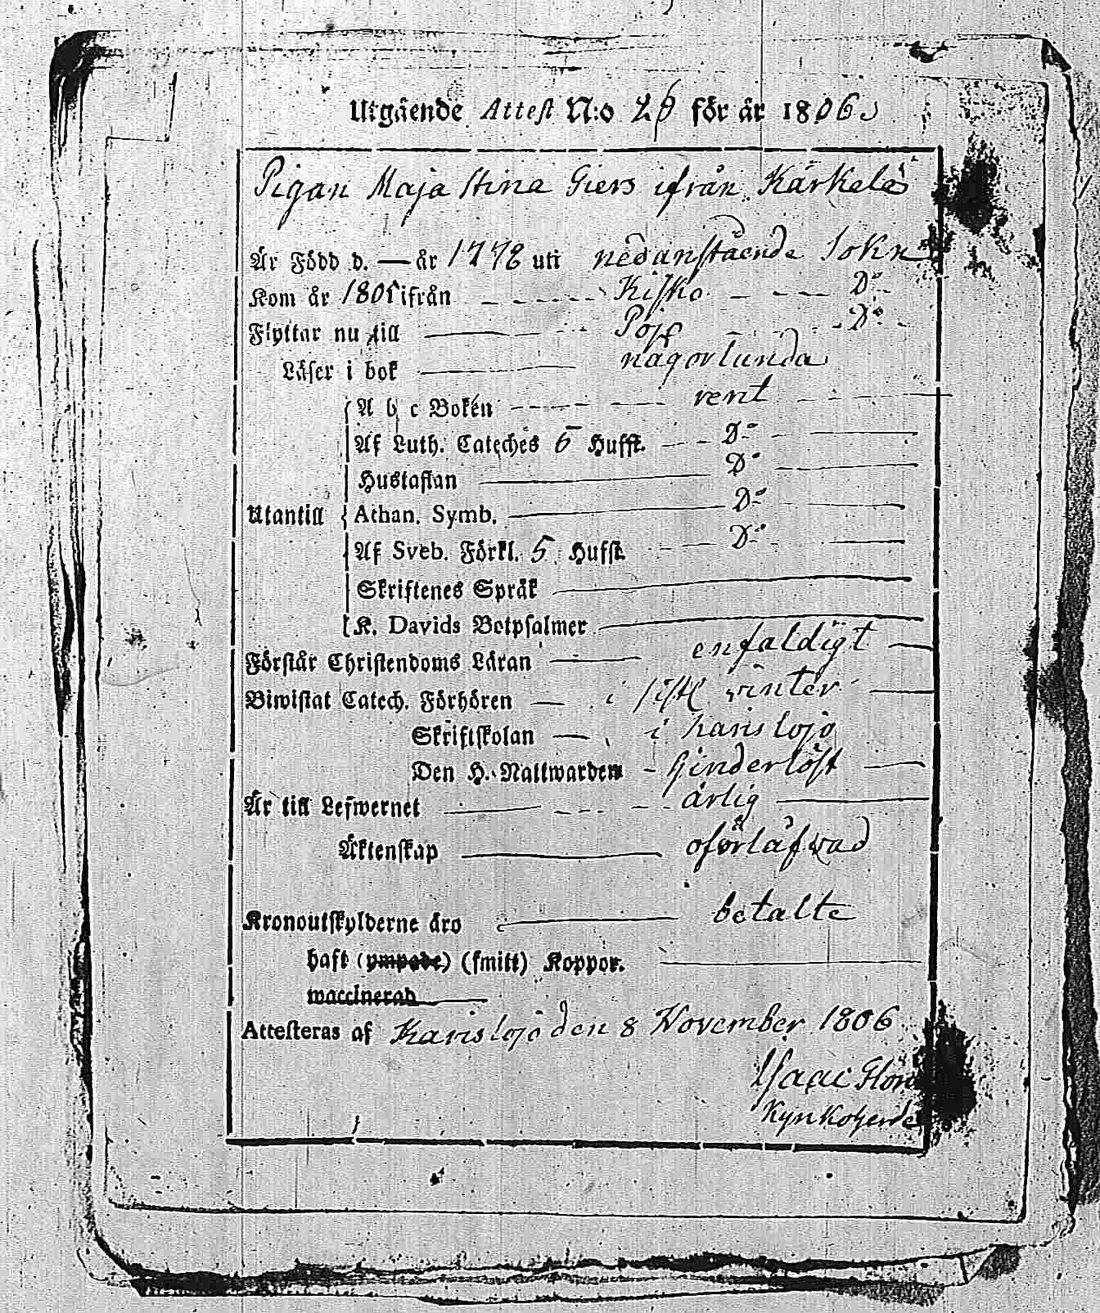 Utgående Attest N:o 28 för år 1806
Pigan Maja Stina Giers ifrån Karkelä
Är Född d. — år 1778 uti nedanstående Sokn
Kom år 1805 ifrån Kisko Do
Flyttar nu till Pojo Do
Läser i bok någorlunda
A b c Boken rent
Af Luth. Cateches 5 Hufst. Do
Hustaflan Do
Utantill Athan. Symb. Do
Af Sveb. Förkl. 5 Hufst. Do
Skriftenes Språk
K. Davids Botpsalmer
Förstår Christendoms Läran enfaldigt
Biwistat Catech. Förhören i sistl vinter
Skriftskolan i Karislojo
Den H. Nattwarden hinderlöst
Är till Lefwernet ärlig
Äktenskap oförlåfwad
Kronoutskylderne äro betalte
haft (ympade) (smitt) Koppor.
waccinerad
Attesteras af Karislojo den 8 November 1806
Isaac
Kyrkoherde